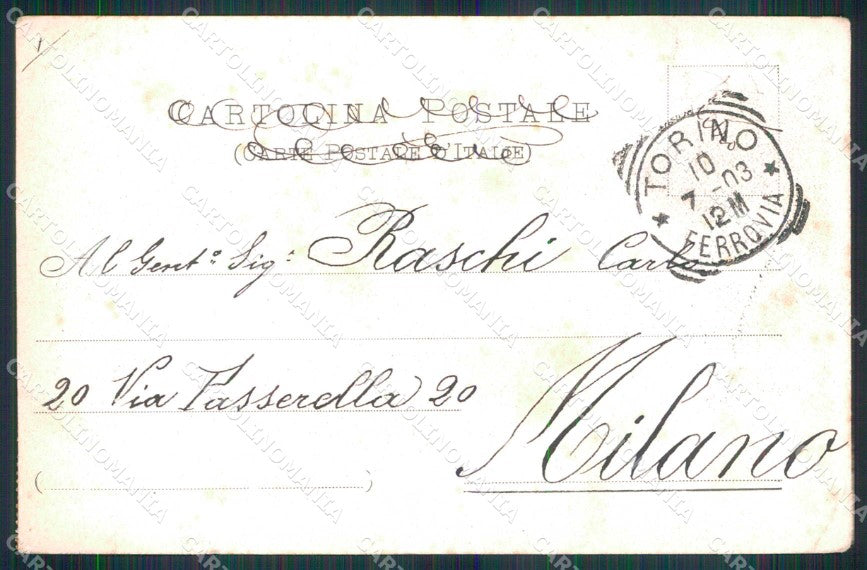 CARTOLINA POSTALE
(CARTE POSTALE D'ITALIE)
TORINO
10
7-03
12M
FERROVIA
Al Gent.º Sig.: Raschi Carlo
20 Via Passerella 20
Milano
CARTOLINOMANIA